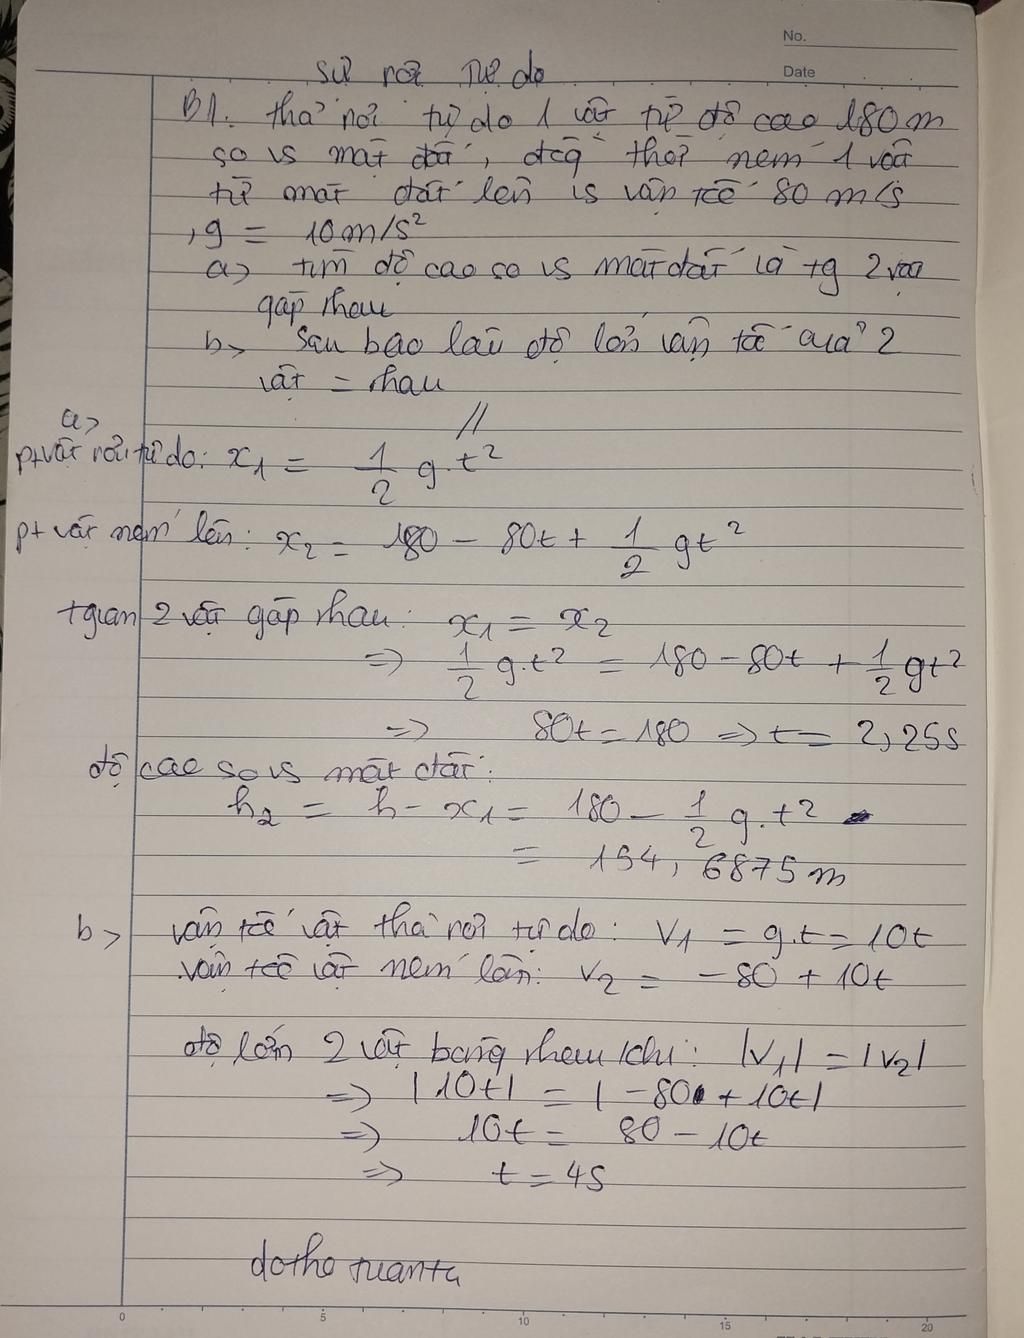 No.
Date
Sự rơi tự do
B1. thả rơi tự do 1 vật từ độ cao 180 m
so vs mặt đất, đtg thời ném 1 vật
từ mặt đất lên vs vận tốc 80 m/s
, g = 10m/s²
a> tìm độ cao so vs mặt đất và tg 2 vật
gặp nhau
b> Sau bao lâu độ lớn vận tốc của 2
vật = nhau
//
a>
pt vật rơi tự do: x₁ = 1/2 g.t²
pt vật ném lên: x₂ = 180 - 80t + 1/2 gt²
tgian 2 vật gặp nhau: x₁ = x₂
=> 1/2 g.t² = 180 - 80t + 1/2 gt²
=> 80t = 180 => t = 2,25s
độ cao so vs mặt đất:
h₂ = h - x₁ = 180 - 1/2 g.t²
= 154,6875 m
b> vận tốc vật thả rơi tự do: V₁ = g.t = 10t
vận tốc vật ném lên: V₂ = -80 + 10t
độ lớn 2 vật bằng nhau khi: |V₁| = |V₂|
=> |10t| = |-80 + 10t|
=> 10t = 80 - 10t
=> t = 4s
dotho tuanta
0 5 10 15 20